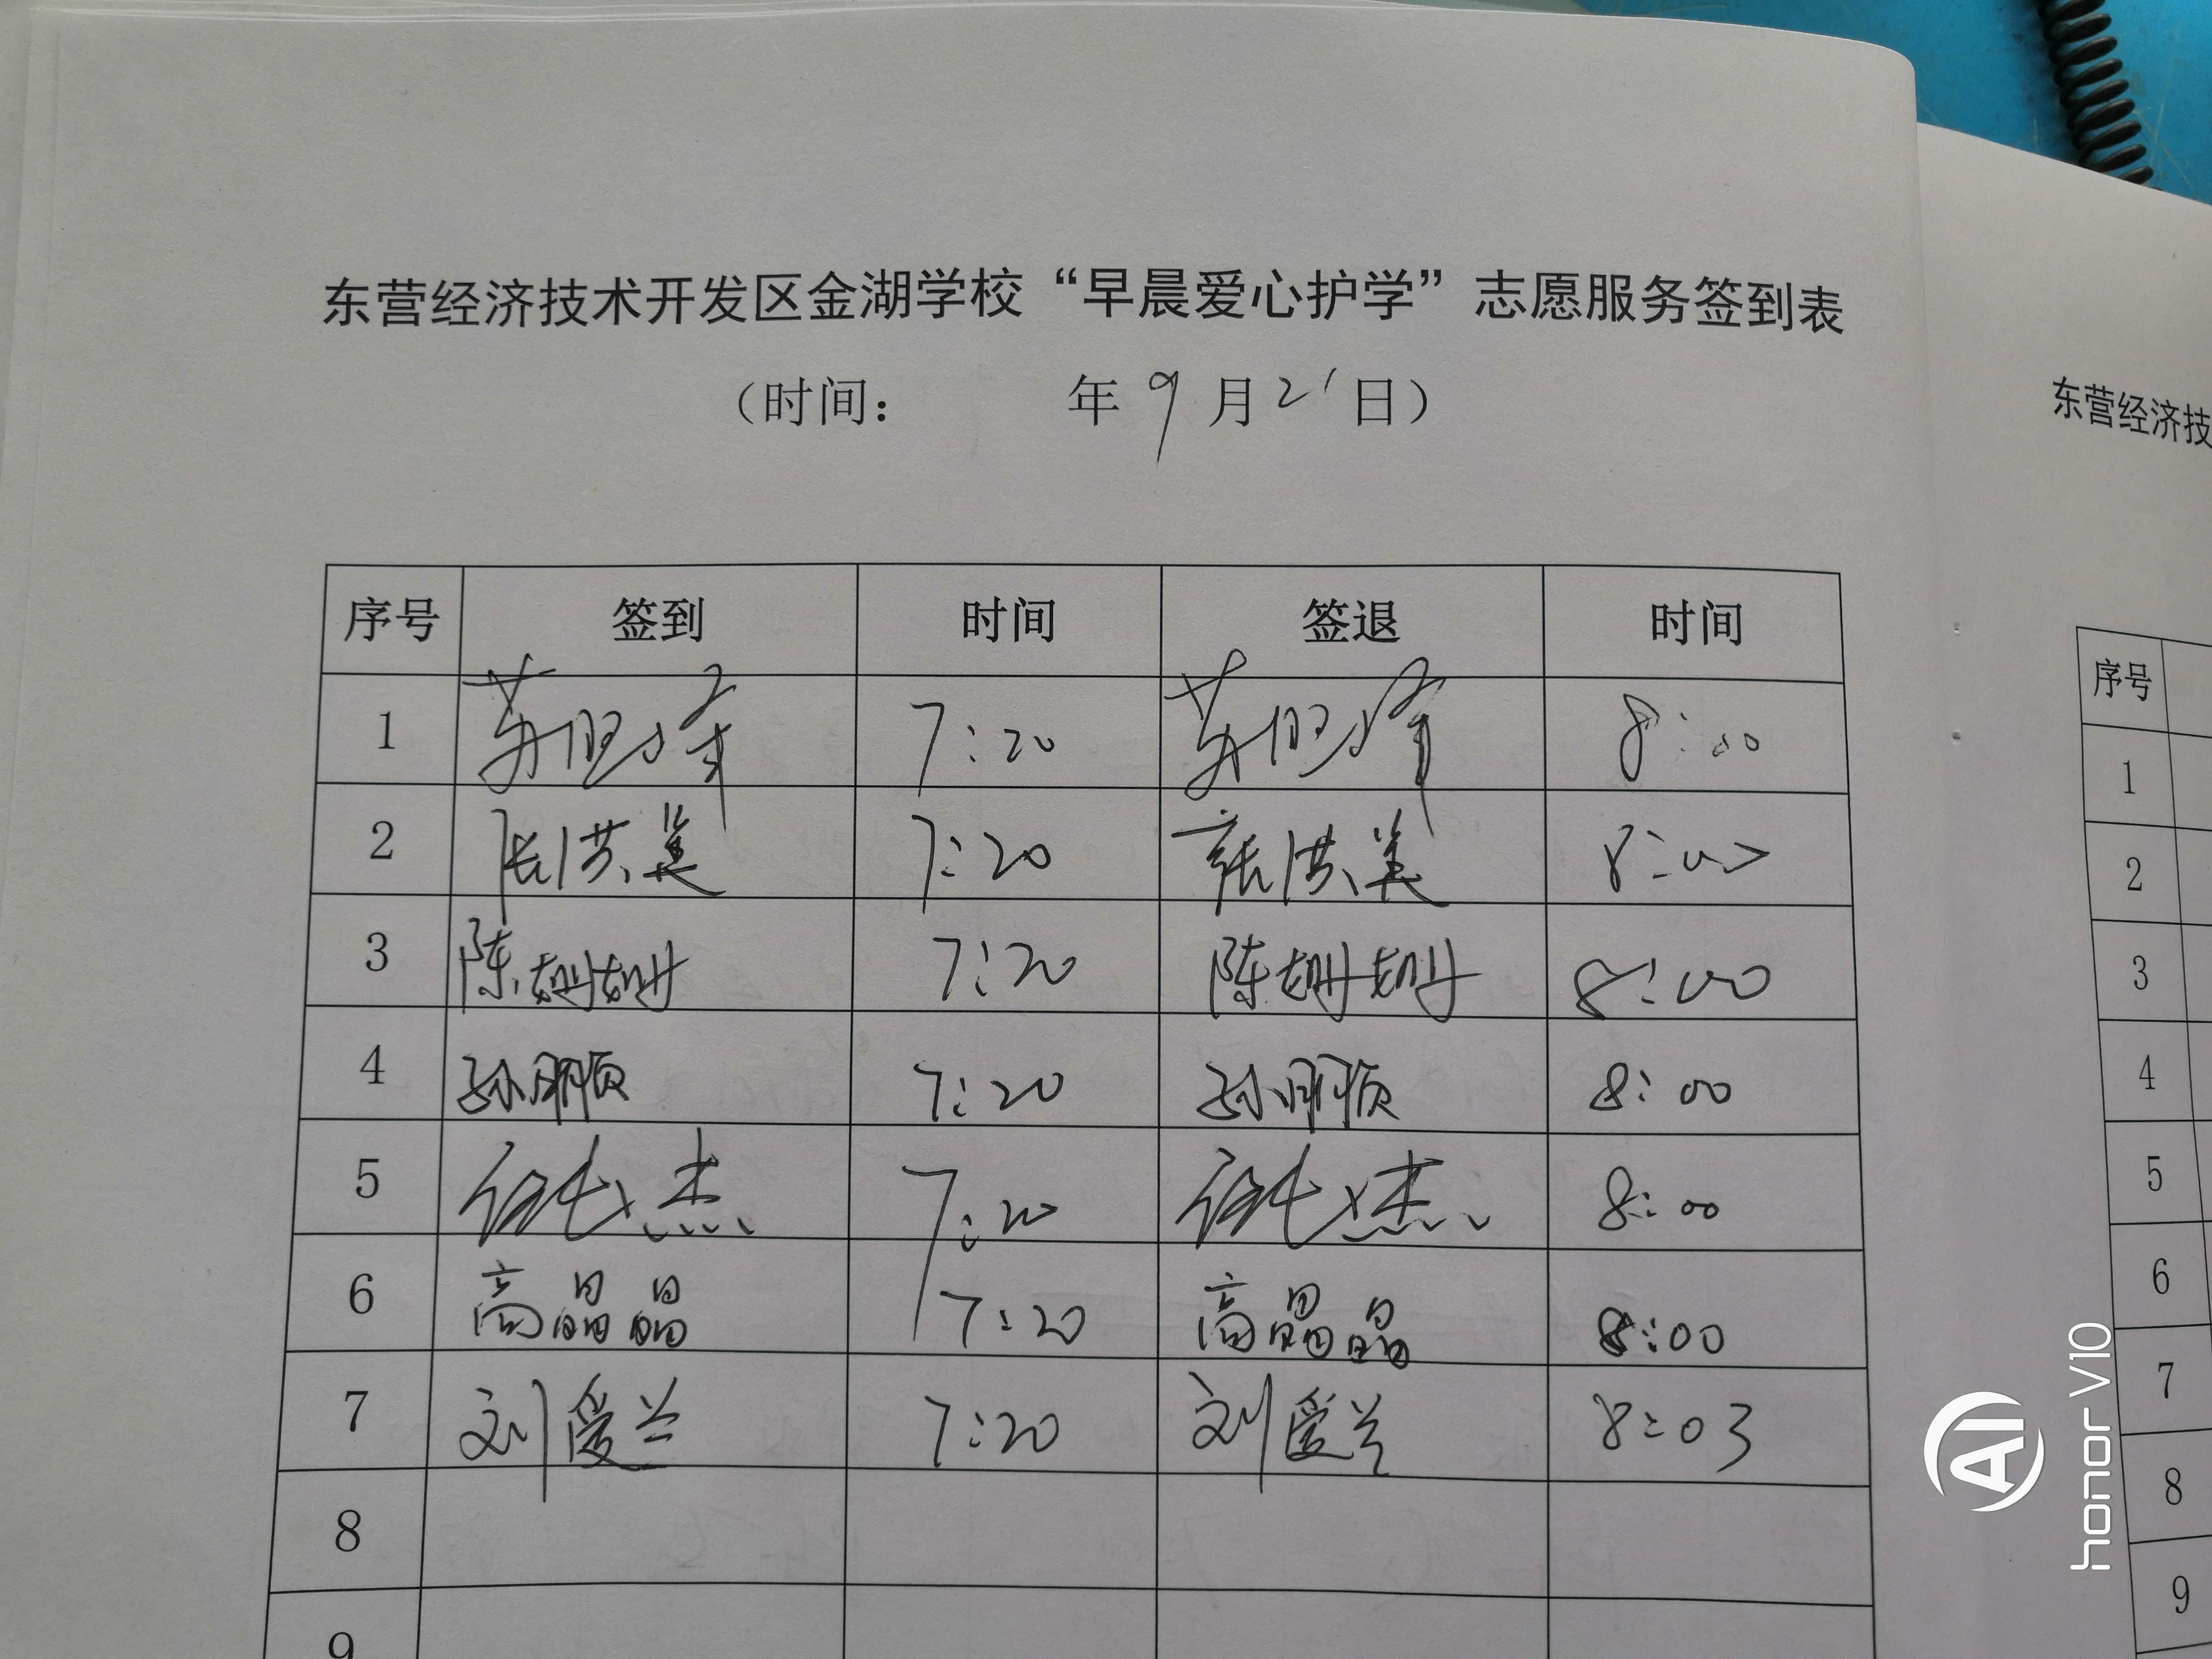 东营经济技术开发区金湖学校“早晨爱心护学”志愿服务签到表
（时间： 年 9 月 21 日）
序号 签到 时间 签退 时间
1 7:20 8:00
2 张洪美 7:20 张洪美 8:00
3 陈姗姗 7:20 陈姗姗 8:00
4 孙明顺 7:20 孙明顺 8:00
5 7:20 8:00
6 高晶晶 7:20 高晶晶 8:00
7 刘爱兰 7:20 刘爱兰 8:03
8
9
东营经济技
序号
1
2
3
4
5
6
7
8
9
AI
honor V10